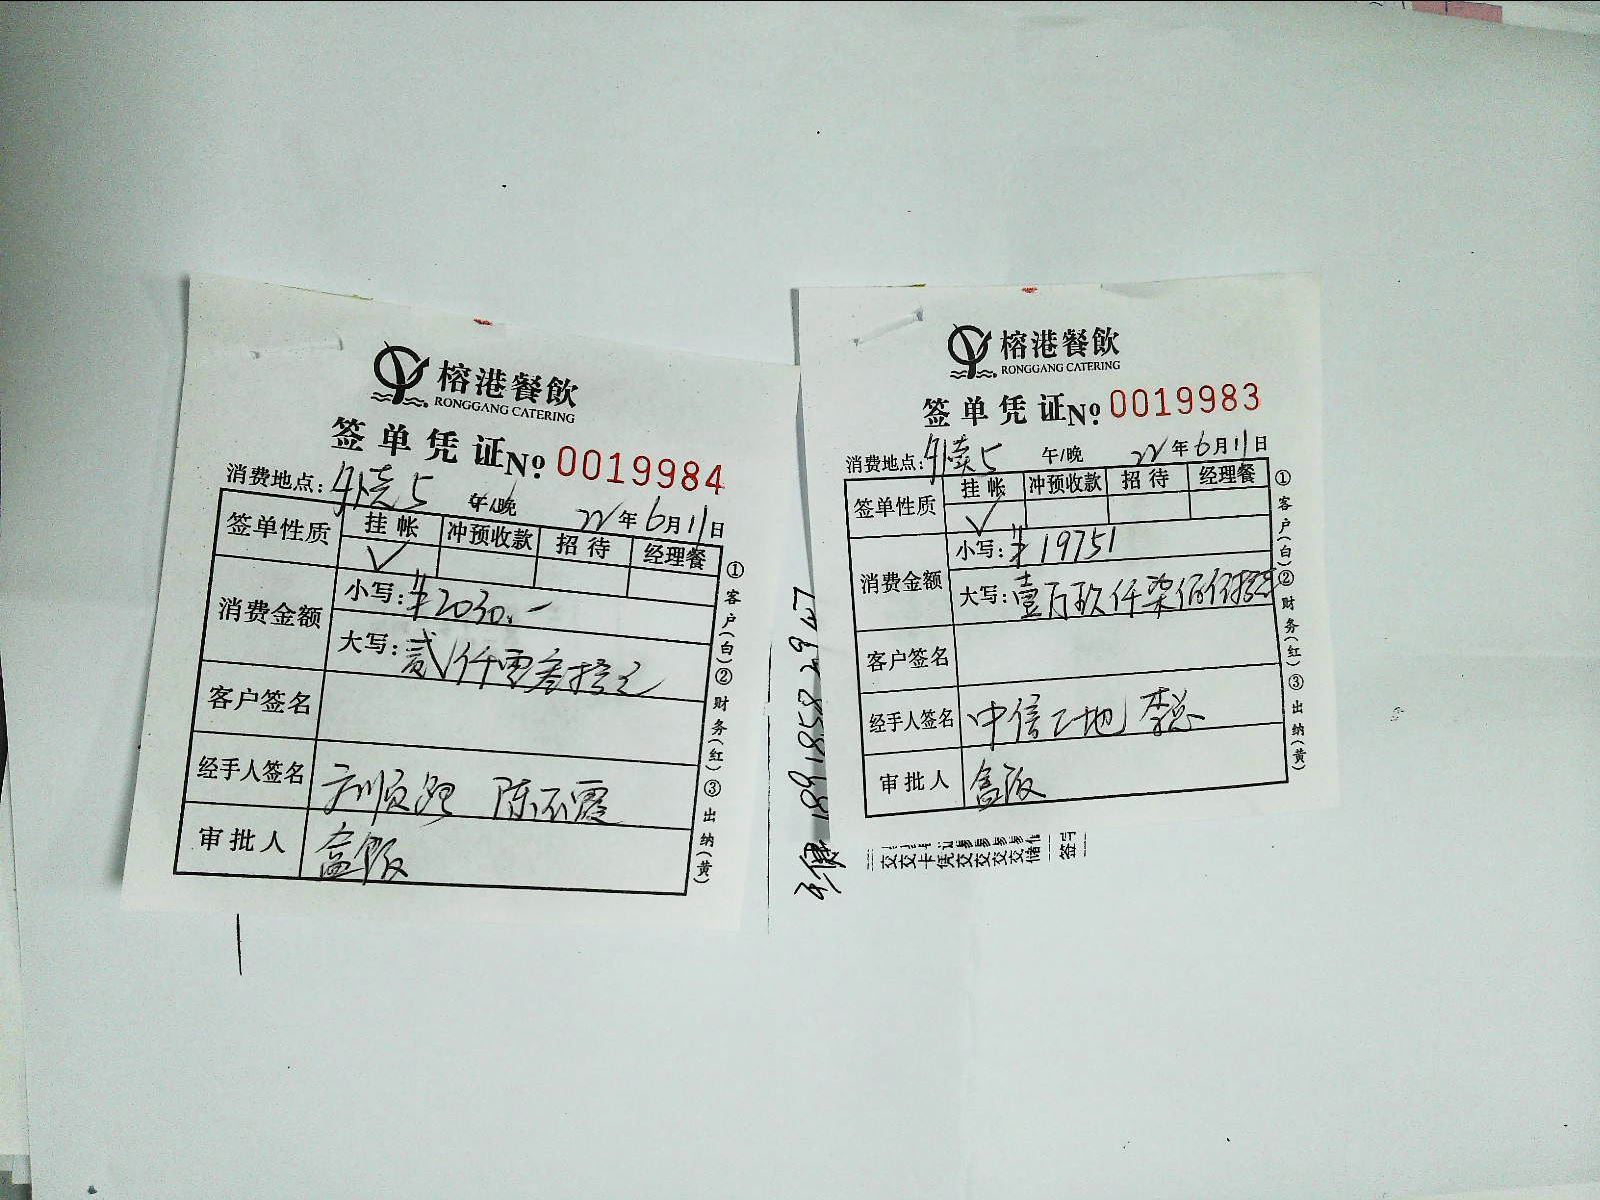 榕港餐飲
RONGGANG CATERING
签单凭证No. 0019984
消费地点: 5 午/晚 22年6月11日
签单性质 挂帐 冲预收款 招待 经理餐
✓
消费金额 小写: ¥2030.-
大写: 贰仟零叁拾元
客户签名
经手人签名 陈不霞
审批人 盒饭
①客户(白)②财务(红)③出纳(黄)
榕港餐飲
RONGGANG CATERING
签单凭证No. 0019983
消费地点: 5 午/晚 22年6月11日
签单性质 挂帐 冲预收款 招待 经理餐
✓
消费金额 小写: ¥19751
大写: 壹万玖仟柒佰伍拾
客户签名
经手人签名 中信工地 李总
审批人 盒饭
①客户(白)②财务(红)③出纳(黄)
1891858294
交交卡凭交交交交储
签字